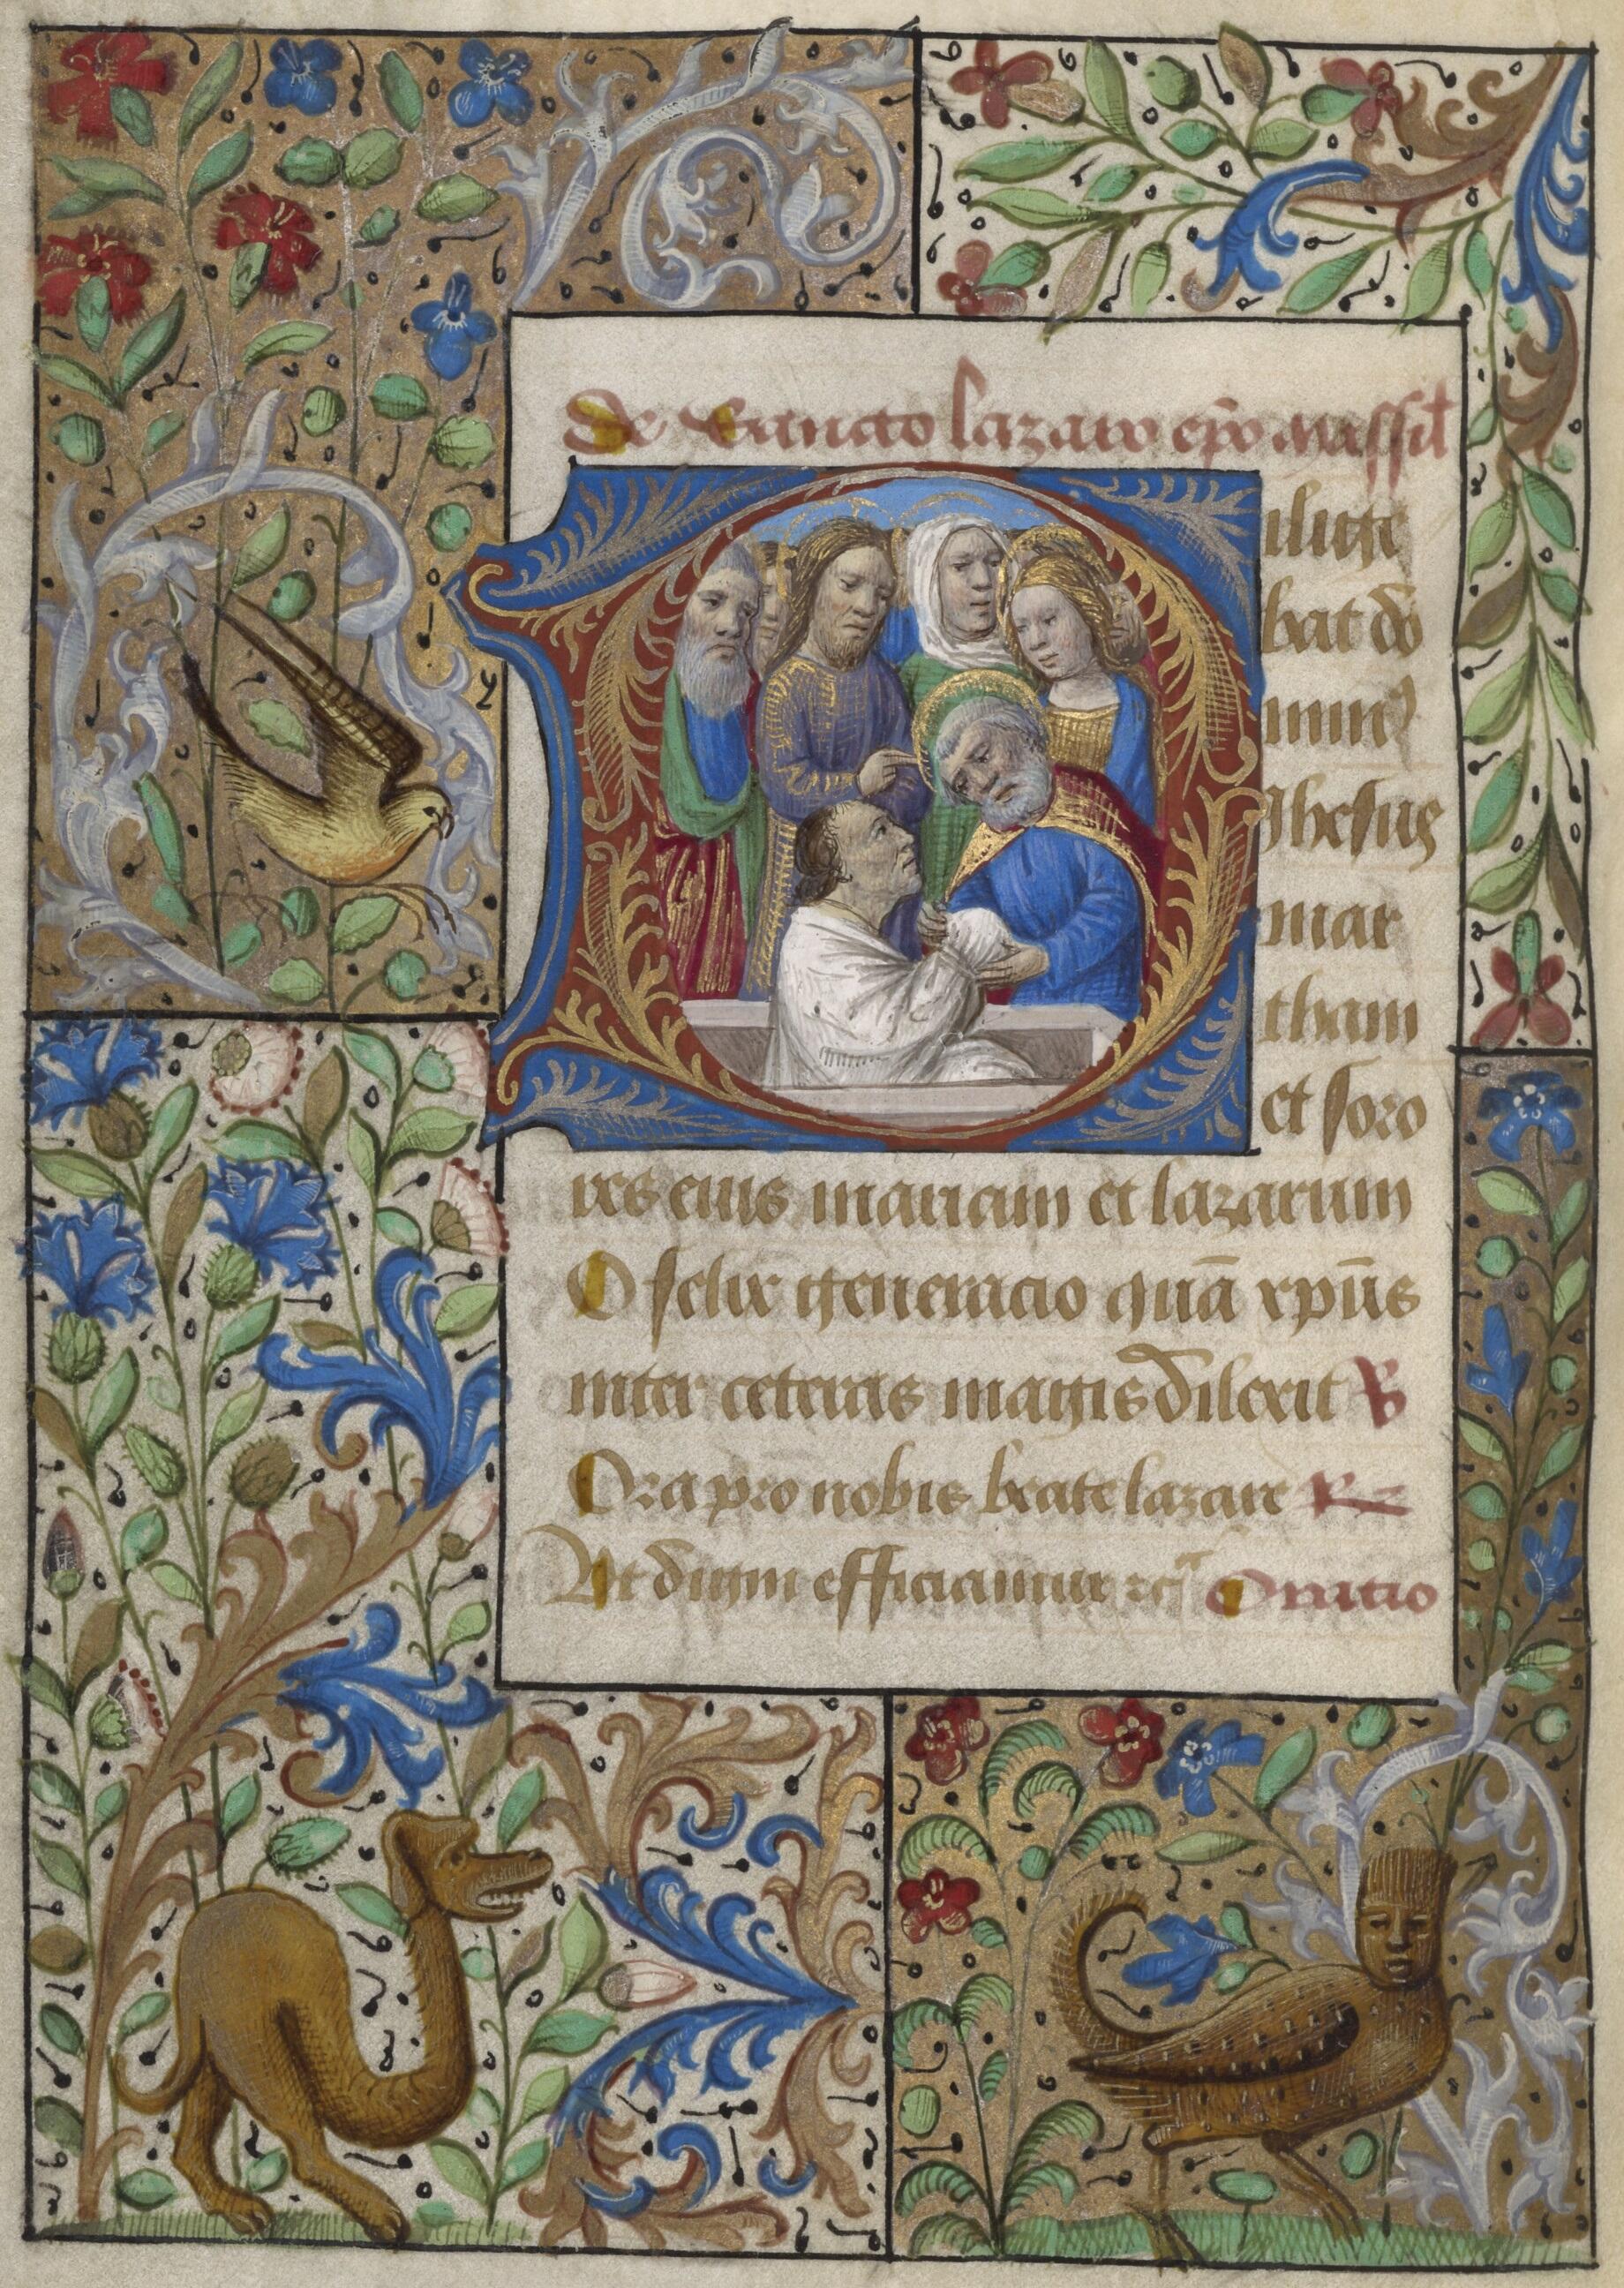 De Sancto lazaro ep̄o massil̄
Diligē
bat dō
minꝰ
Jhesus
mar
tham
et soro
res eius mariam et lazarum
O felix generacio quā xp̄us
inter ceteras magis dilexit ℣
Ora pro nobis beate lazare ℟
Ut digni efficiamur ⁊c̄ Oratio